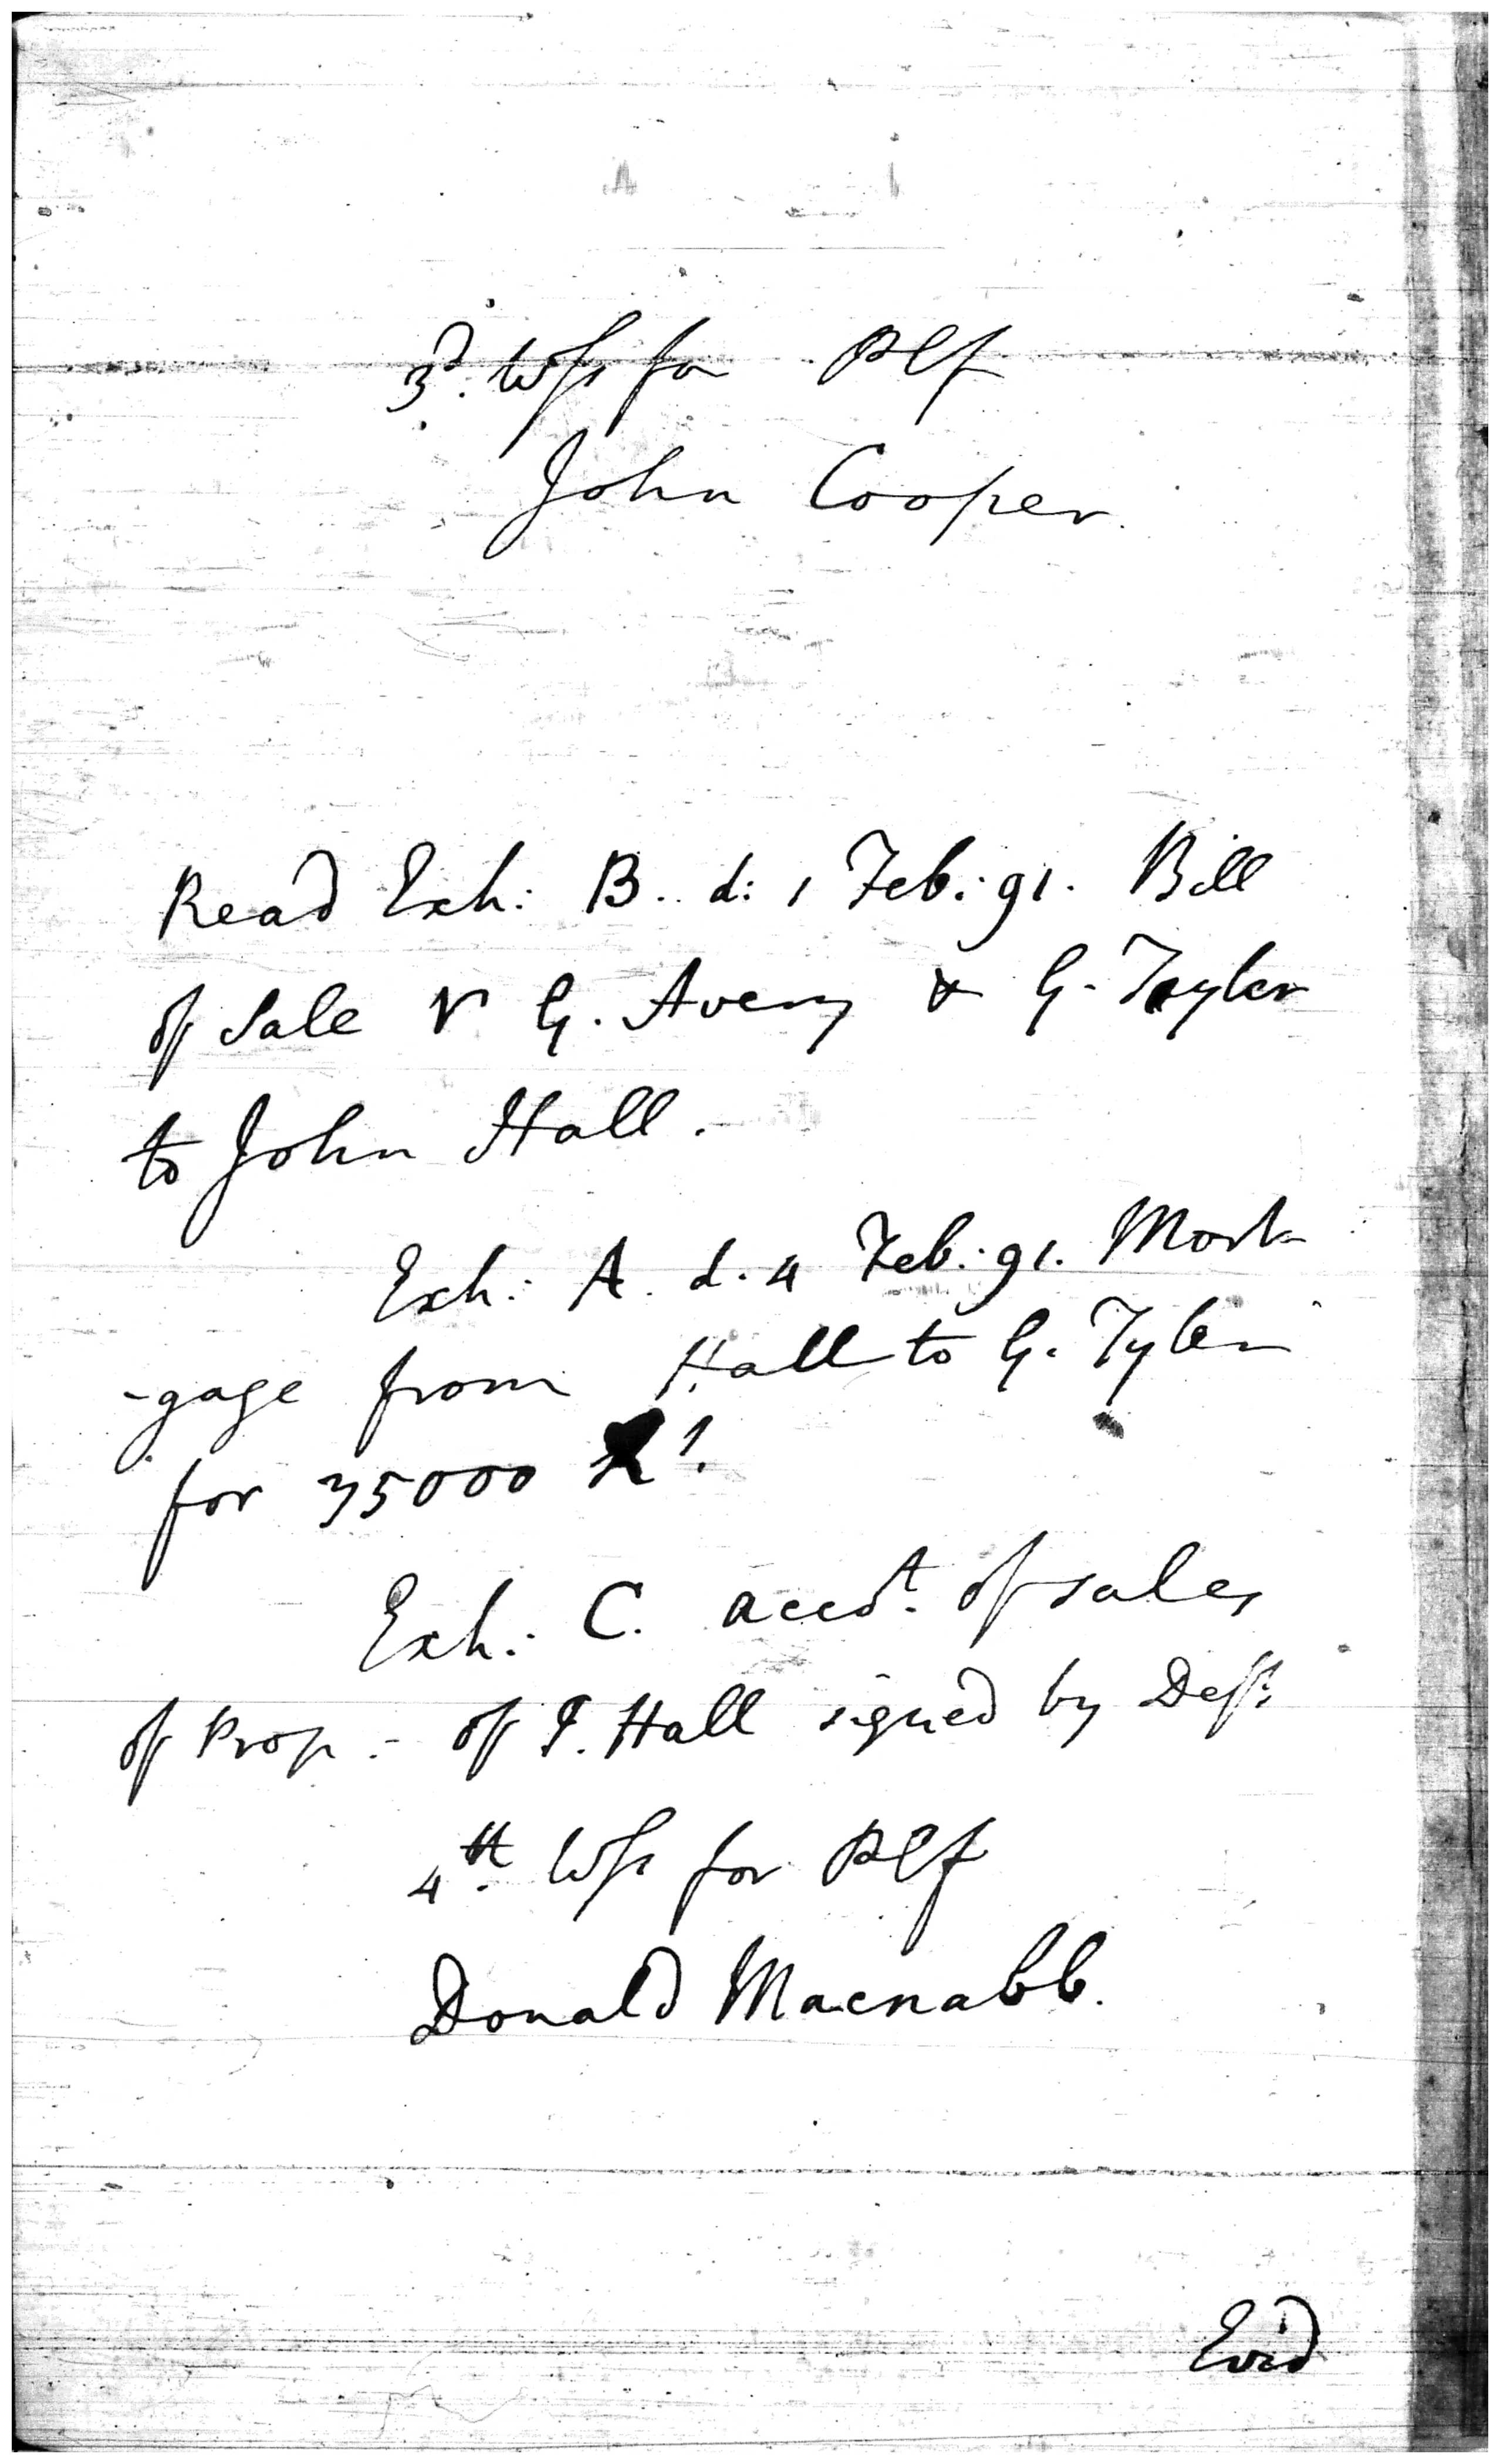 3d. Wss for Plf
John Cooper.
Read Exh: B. d: 1 Feb: 91. Bill
of Sale G. Avery & G. Tyler
to John Hall.
Exh: A. d. 4 Feb: 91. Mort
-gage from Hall to G. Tyler
for 35000
Exh: C. Acct. of sales
of Prop:- of J. Hall signed by Deft:
4th. Wss for Plf
Donald Macnabb.
Evid